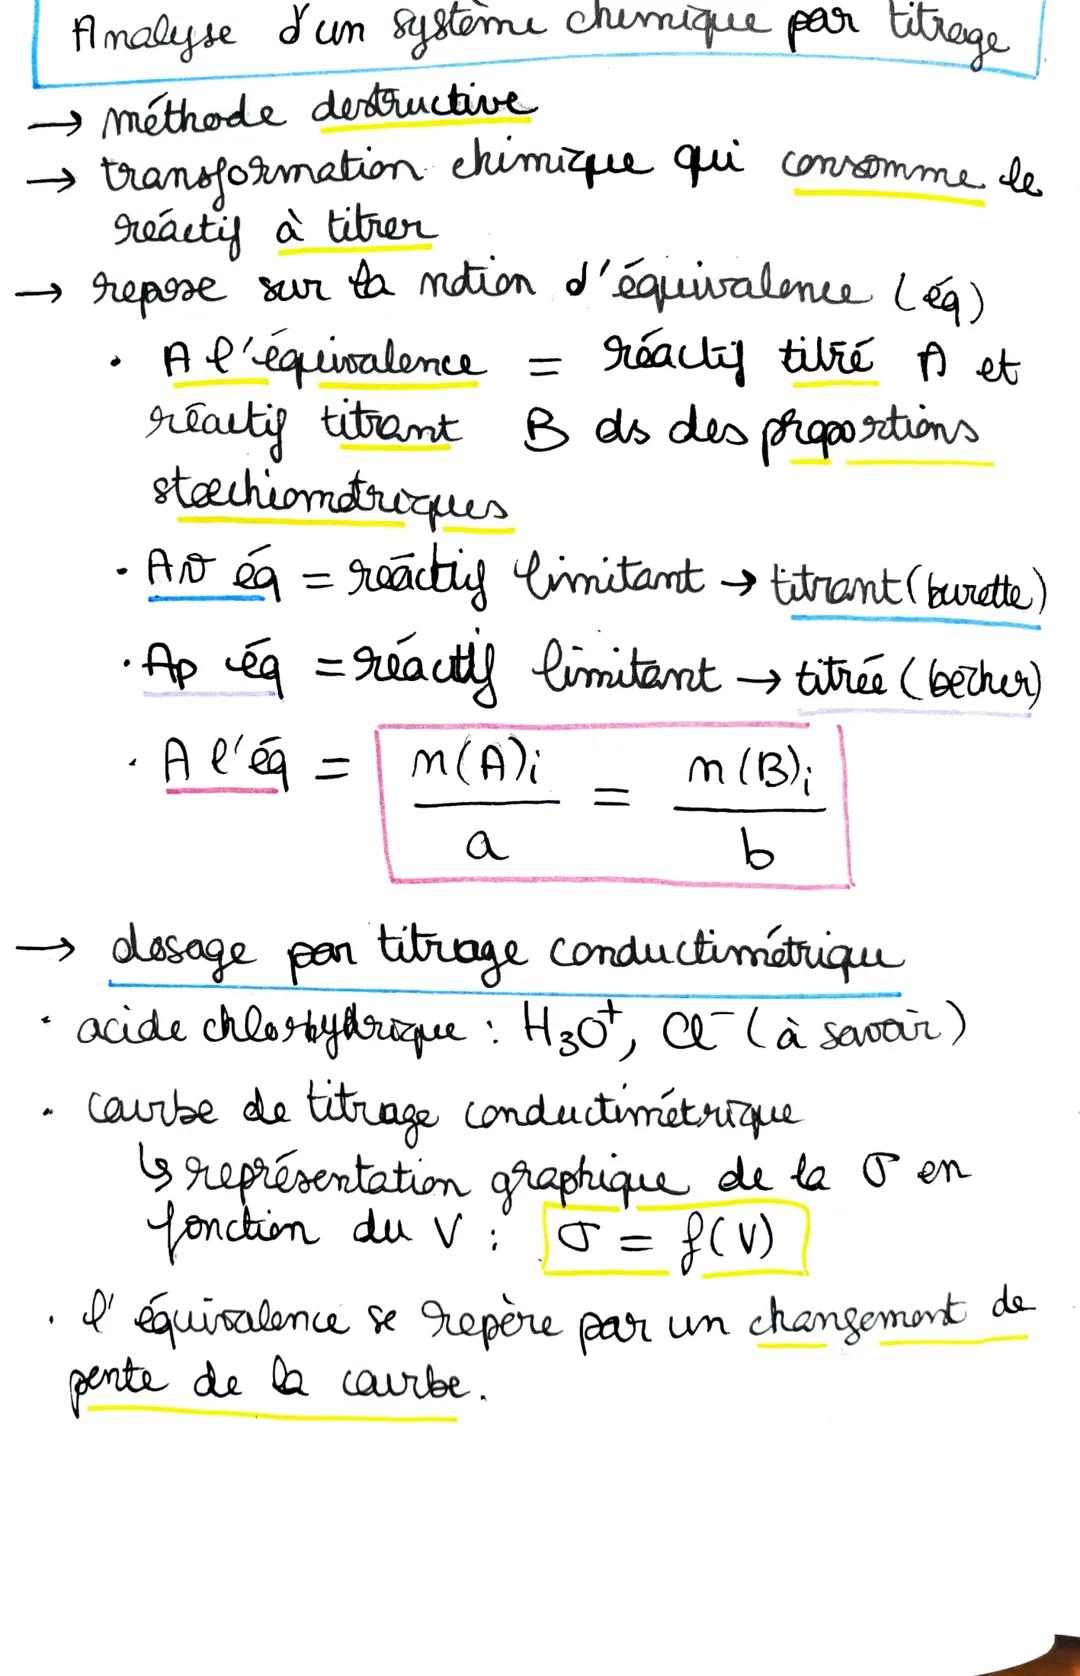 Analyse d'un système chimique par titrage
→ méthode destructive
→ transformation chimique qui consomme le
réactif à titrer
→ repose sur la notion d'équivalence (éq)
• A l'équivalence = réactif titré A et
réactif titrant B ds des proportions
stœchiométriques
• Av éq = réactif limitant → titrant (burette)
• Ap éq = réactif limitant → titrée (bécher)
• A l'éq = n(A)i / a = n(B)i / b
→ dosage par titrage conductimétrique
• acide chlorhydrique : H₃O⁺, Cl⁻ (à savoir)
• courbe de titrage conductimétrique
↳ représentation graphique de la σ en
fonction du V : σ = f(V)
• l'équivalence se repère par un changement de
pente de la courbe.